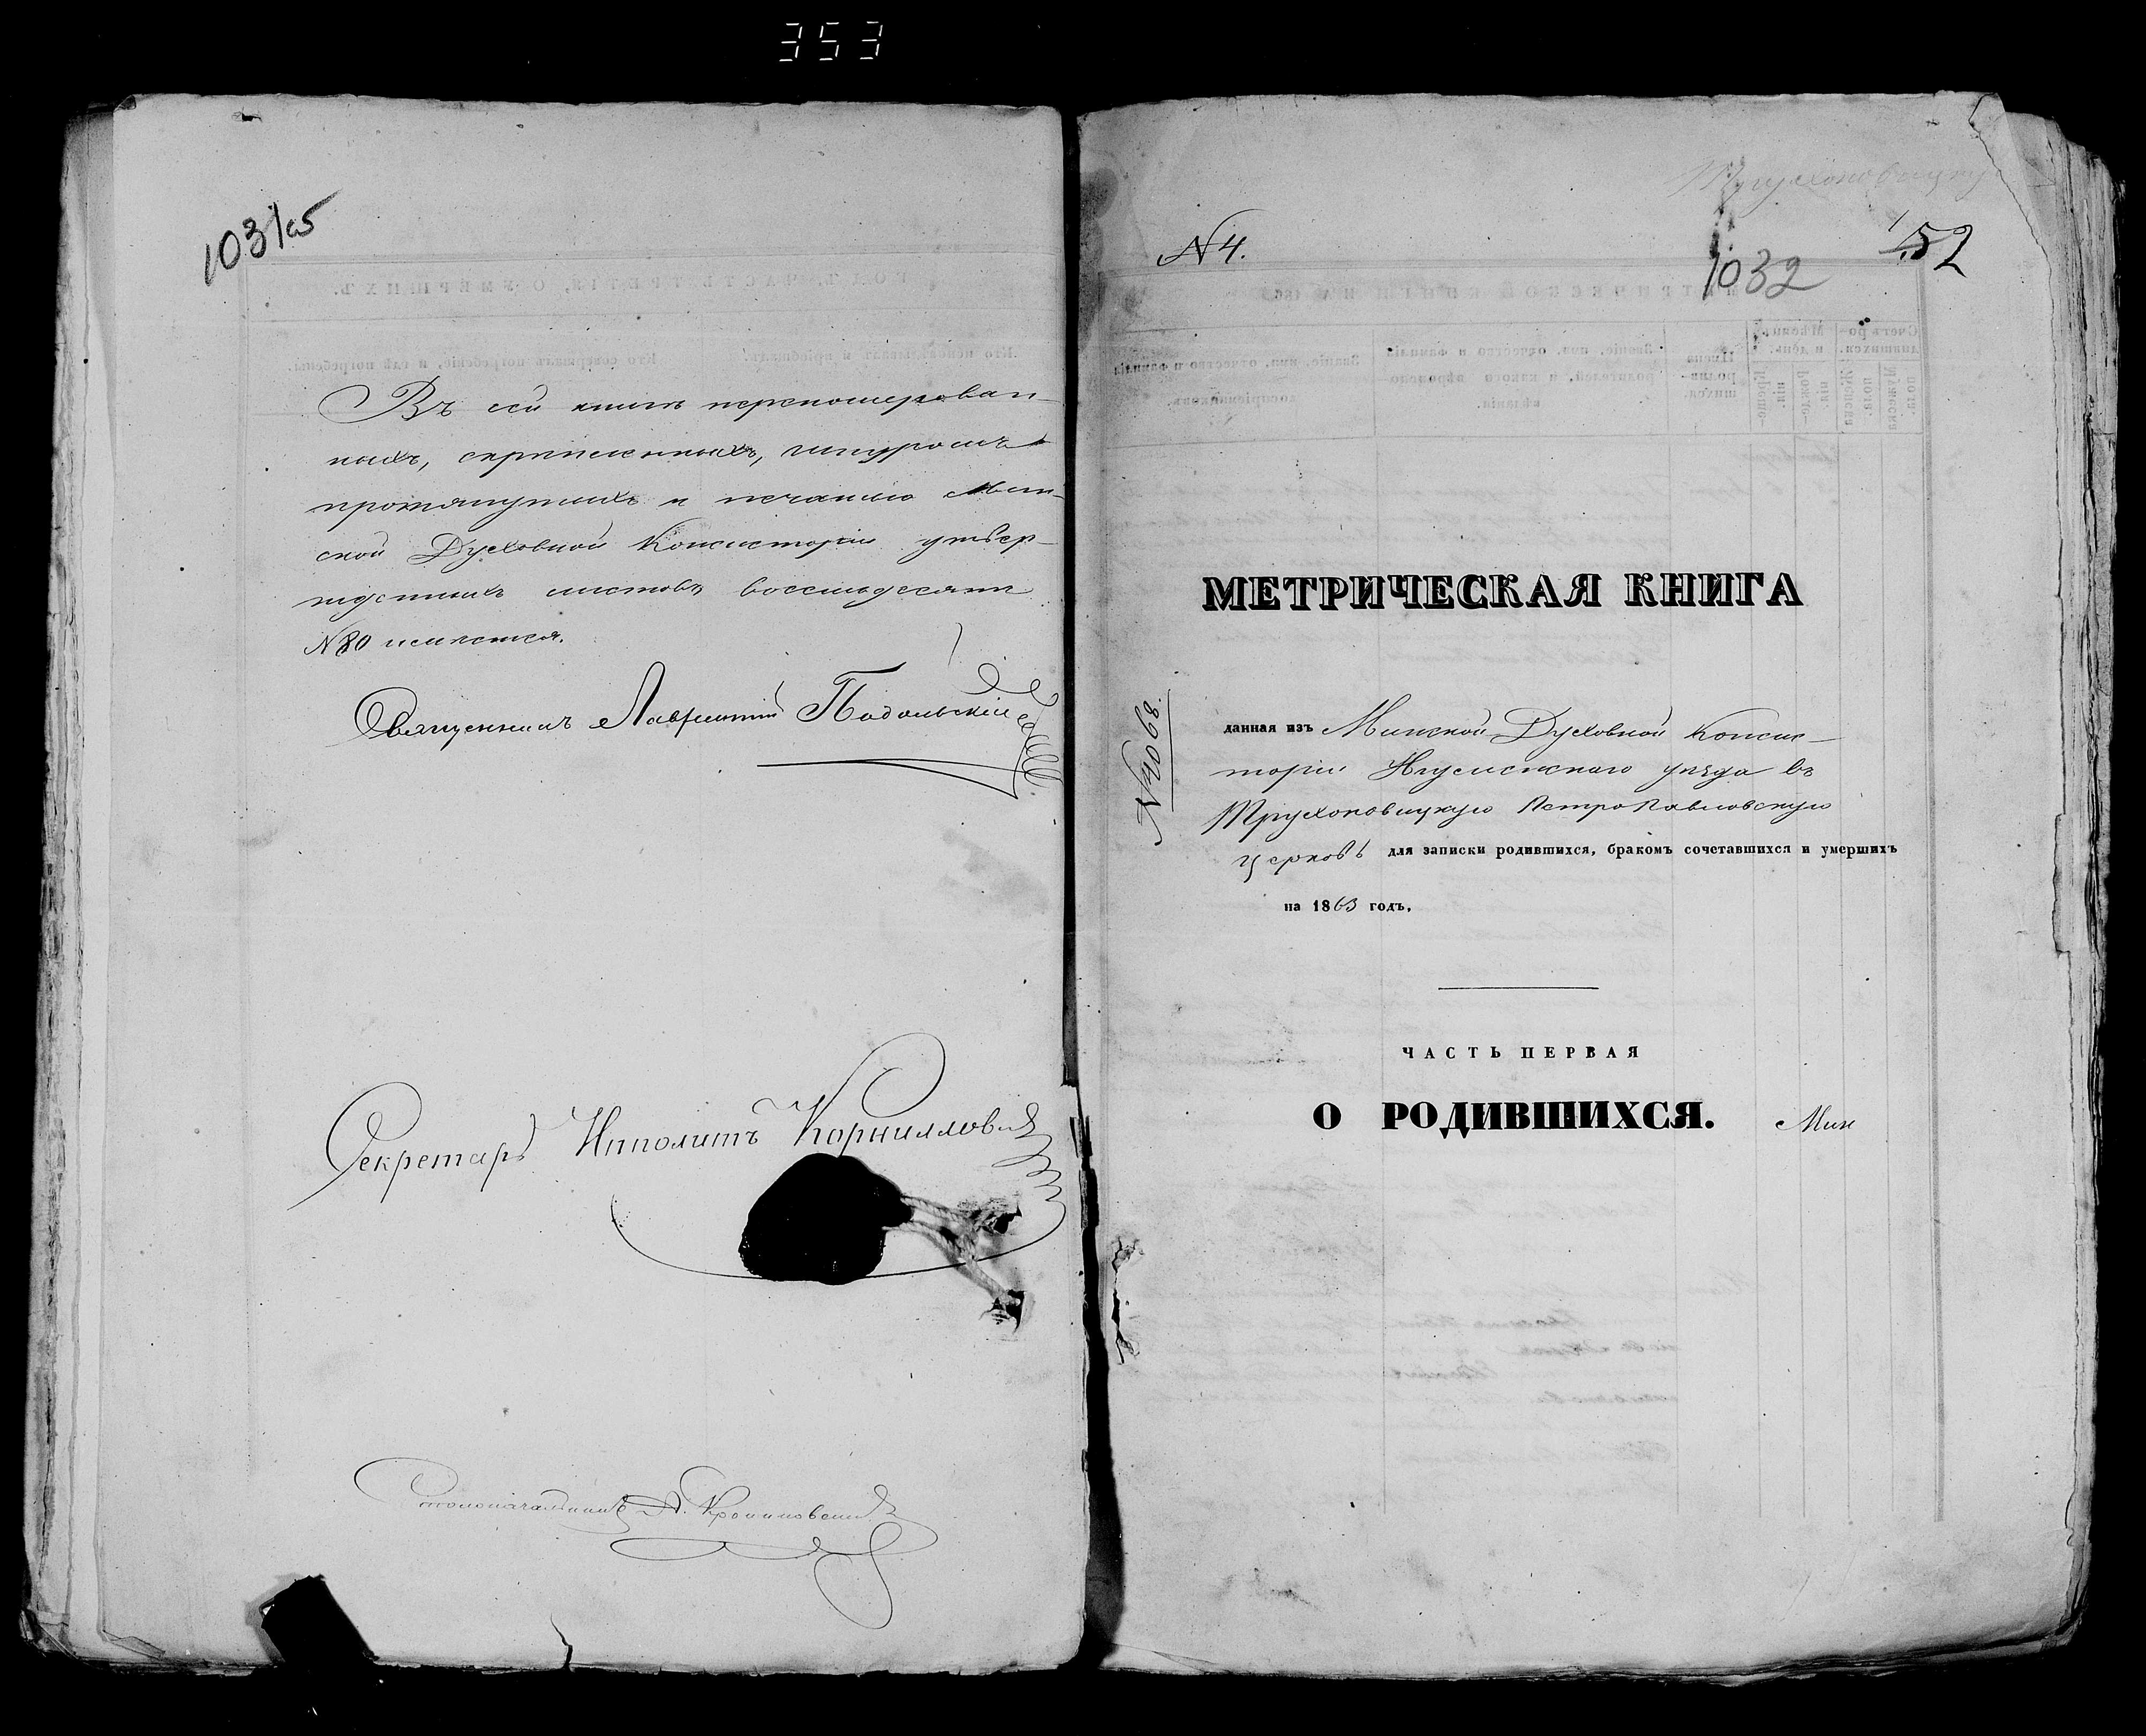 353
1031об
Въ сей книгѣ перенумерован-
ныхъ, скрѣпленныхъ, шнуромъ
протянутыхъ и печатью Мин-
ской Духовной Консисторіи утвер-
жденныхъ листовъ восемьдесятъ
№ 80 имѣется.
Священникъ Лаврентій Подольскій
Секретарь Ипполитъ Корниллович
Столоначальникъ А.
Трухоновицкую
№ 4.
1032
152
МЕТРИЧЕСКАЯ КНИГА
№ 4068.
данная изъ Минской Духовной Консис-
торіи Игуменскаго уѣзда въ
Трухоновицкую Петропавловскую
церковь для записки родившихся, бракомъ сочетавшихся и умершихъ
на 1863 годъ.
ЧАСТЬ ПЕРВАЯ
О РОДИВШИХСЯ. Мин